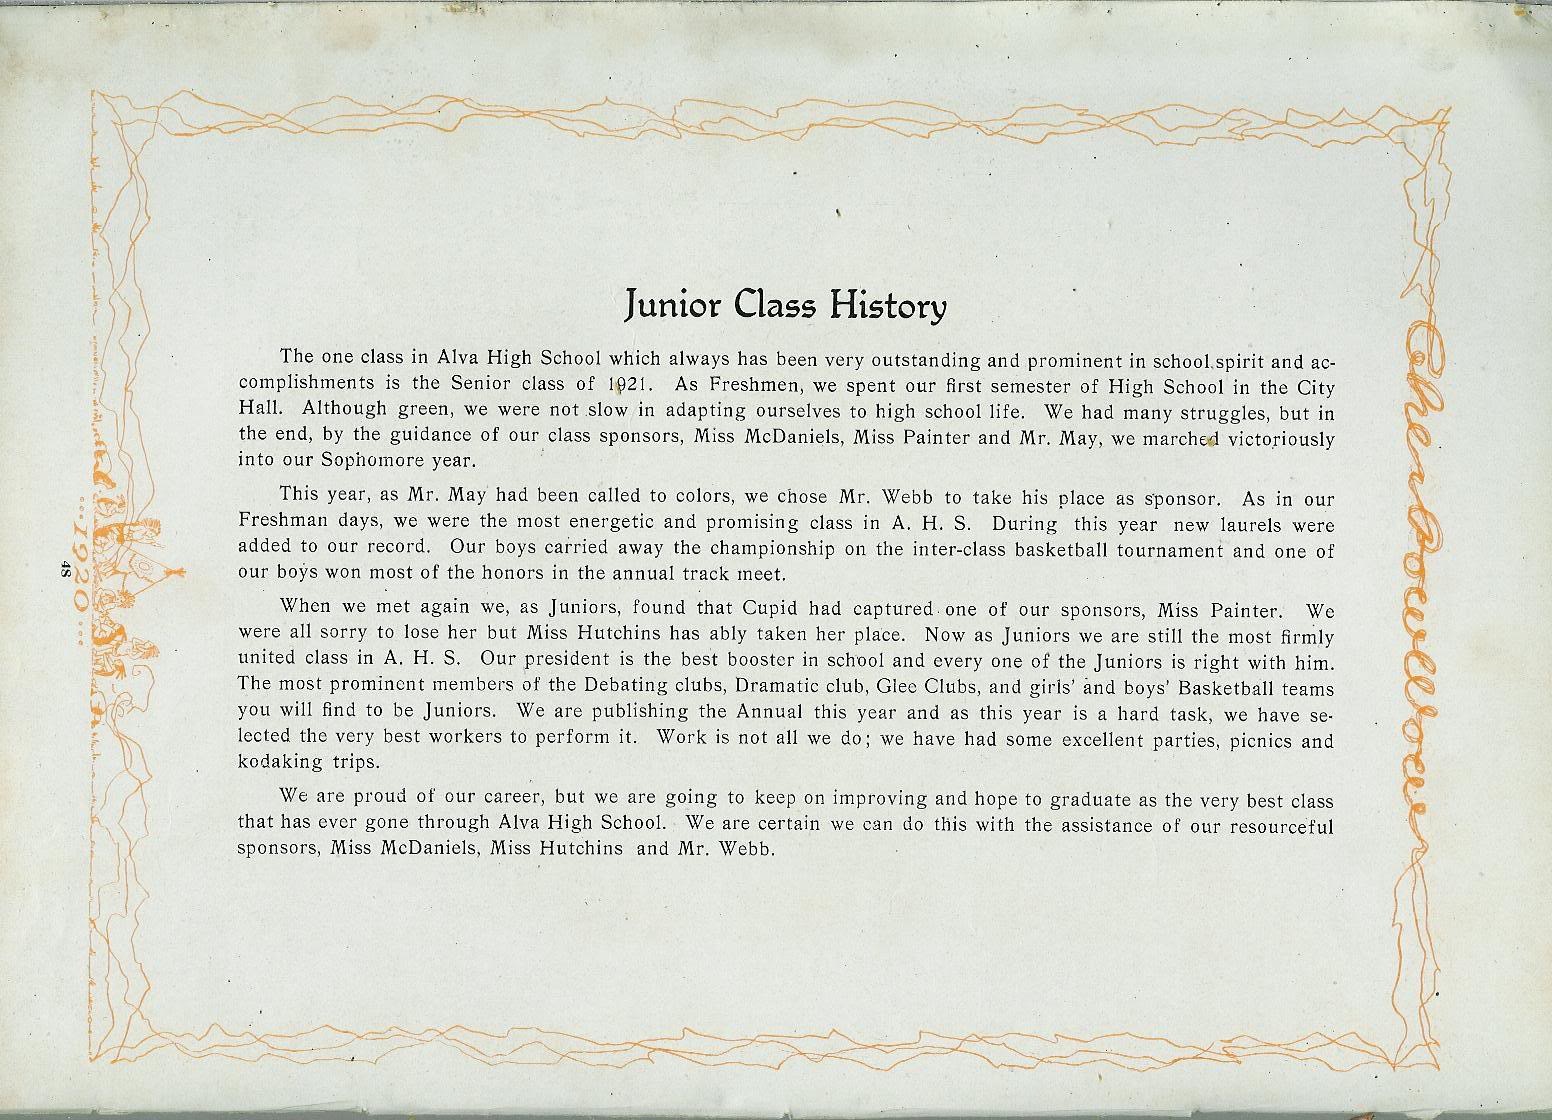 Junior Class History
The one class in Alva High School which always has been very outstanding and prominent in school spirit and ac-
complishments is the Senior class of 1921. As Freshmen, we spent our first semester of High School in the City
Hall. Although green, we were not slow in adapting ourselves to high school life. We had many struggles, but in
the end, by the guidance of our class sponsors, Miss McDaniels, Miss Painter and Mr. May, we marched victoriously
into our Sophomore year.
This year, as Mr. May had been called to colors, we chose Mr. Webb to take his place as sponsor. As in our
Freshman days, we were the most energetic and promising class in A. H. S. During this year new laurels were
added to our record. Our boys carried away the championship on the inter-class basketball tournament and one of
our boys won most of the honors in the annual track meet.
When we met again we, as Juniors, found that Cupid had captured one of our sponsors, Miss Painter. We
were all sorry to lose her but Miss Hutchins has ably taken her place. Now as Juniors we are still the most firmly
united class in A. H. S. Our president is the best booster in school and every one of the Juniors is right with him.
The most prominent members of the Debating clubs, Dramatic club, Glee Clubs, and girls' and boys' Basketball teams
you will find to be Juniors. We are publishing the Annual this year and as this year is a hard task, we have se-
lected the very best workers to perform it. Work is not all we do; we have had some excellent parties, picnics and
kodaking trips.
We are proud of our career, but we are going to keep on improving and hope to graduate as the very best class
that has ever gone through Alva High School. We are certain we can do this with the assistance of our resourceful
sponsors, Miss McDaniels, Miss Hutchins and Mr. Webb.
...1920...
48